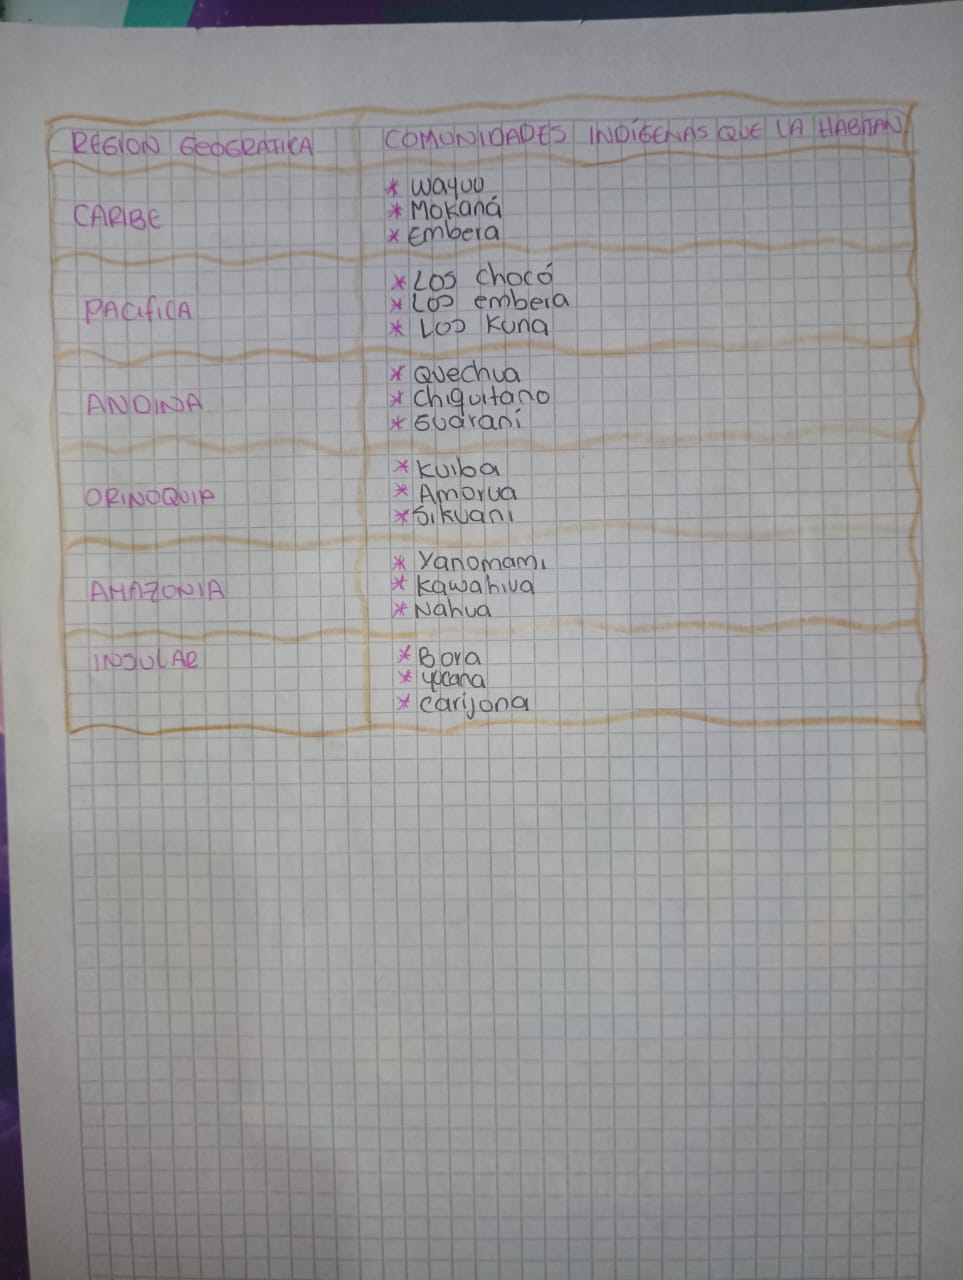 REGION GEOGRAFIKA COMUNIDADES INDÍGENAS QUE LA HABITAN
CARIBE
* Wayuu
* Mokaná
* Embera
PACIfICA
* LOS Chocó
* LOS embera
* LOS Kuna
ANDINA
* Quechua
* Chiquitano
* Guaraní
ORINOQUIA
* Kuiba
* Amorua
* Sikuani
AMAZONIA
* Yanomami
* Kawahiva
* Nahua
INSULAR
* Bora
* yocana
* Carijona